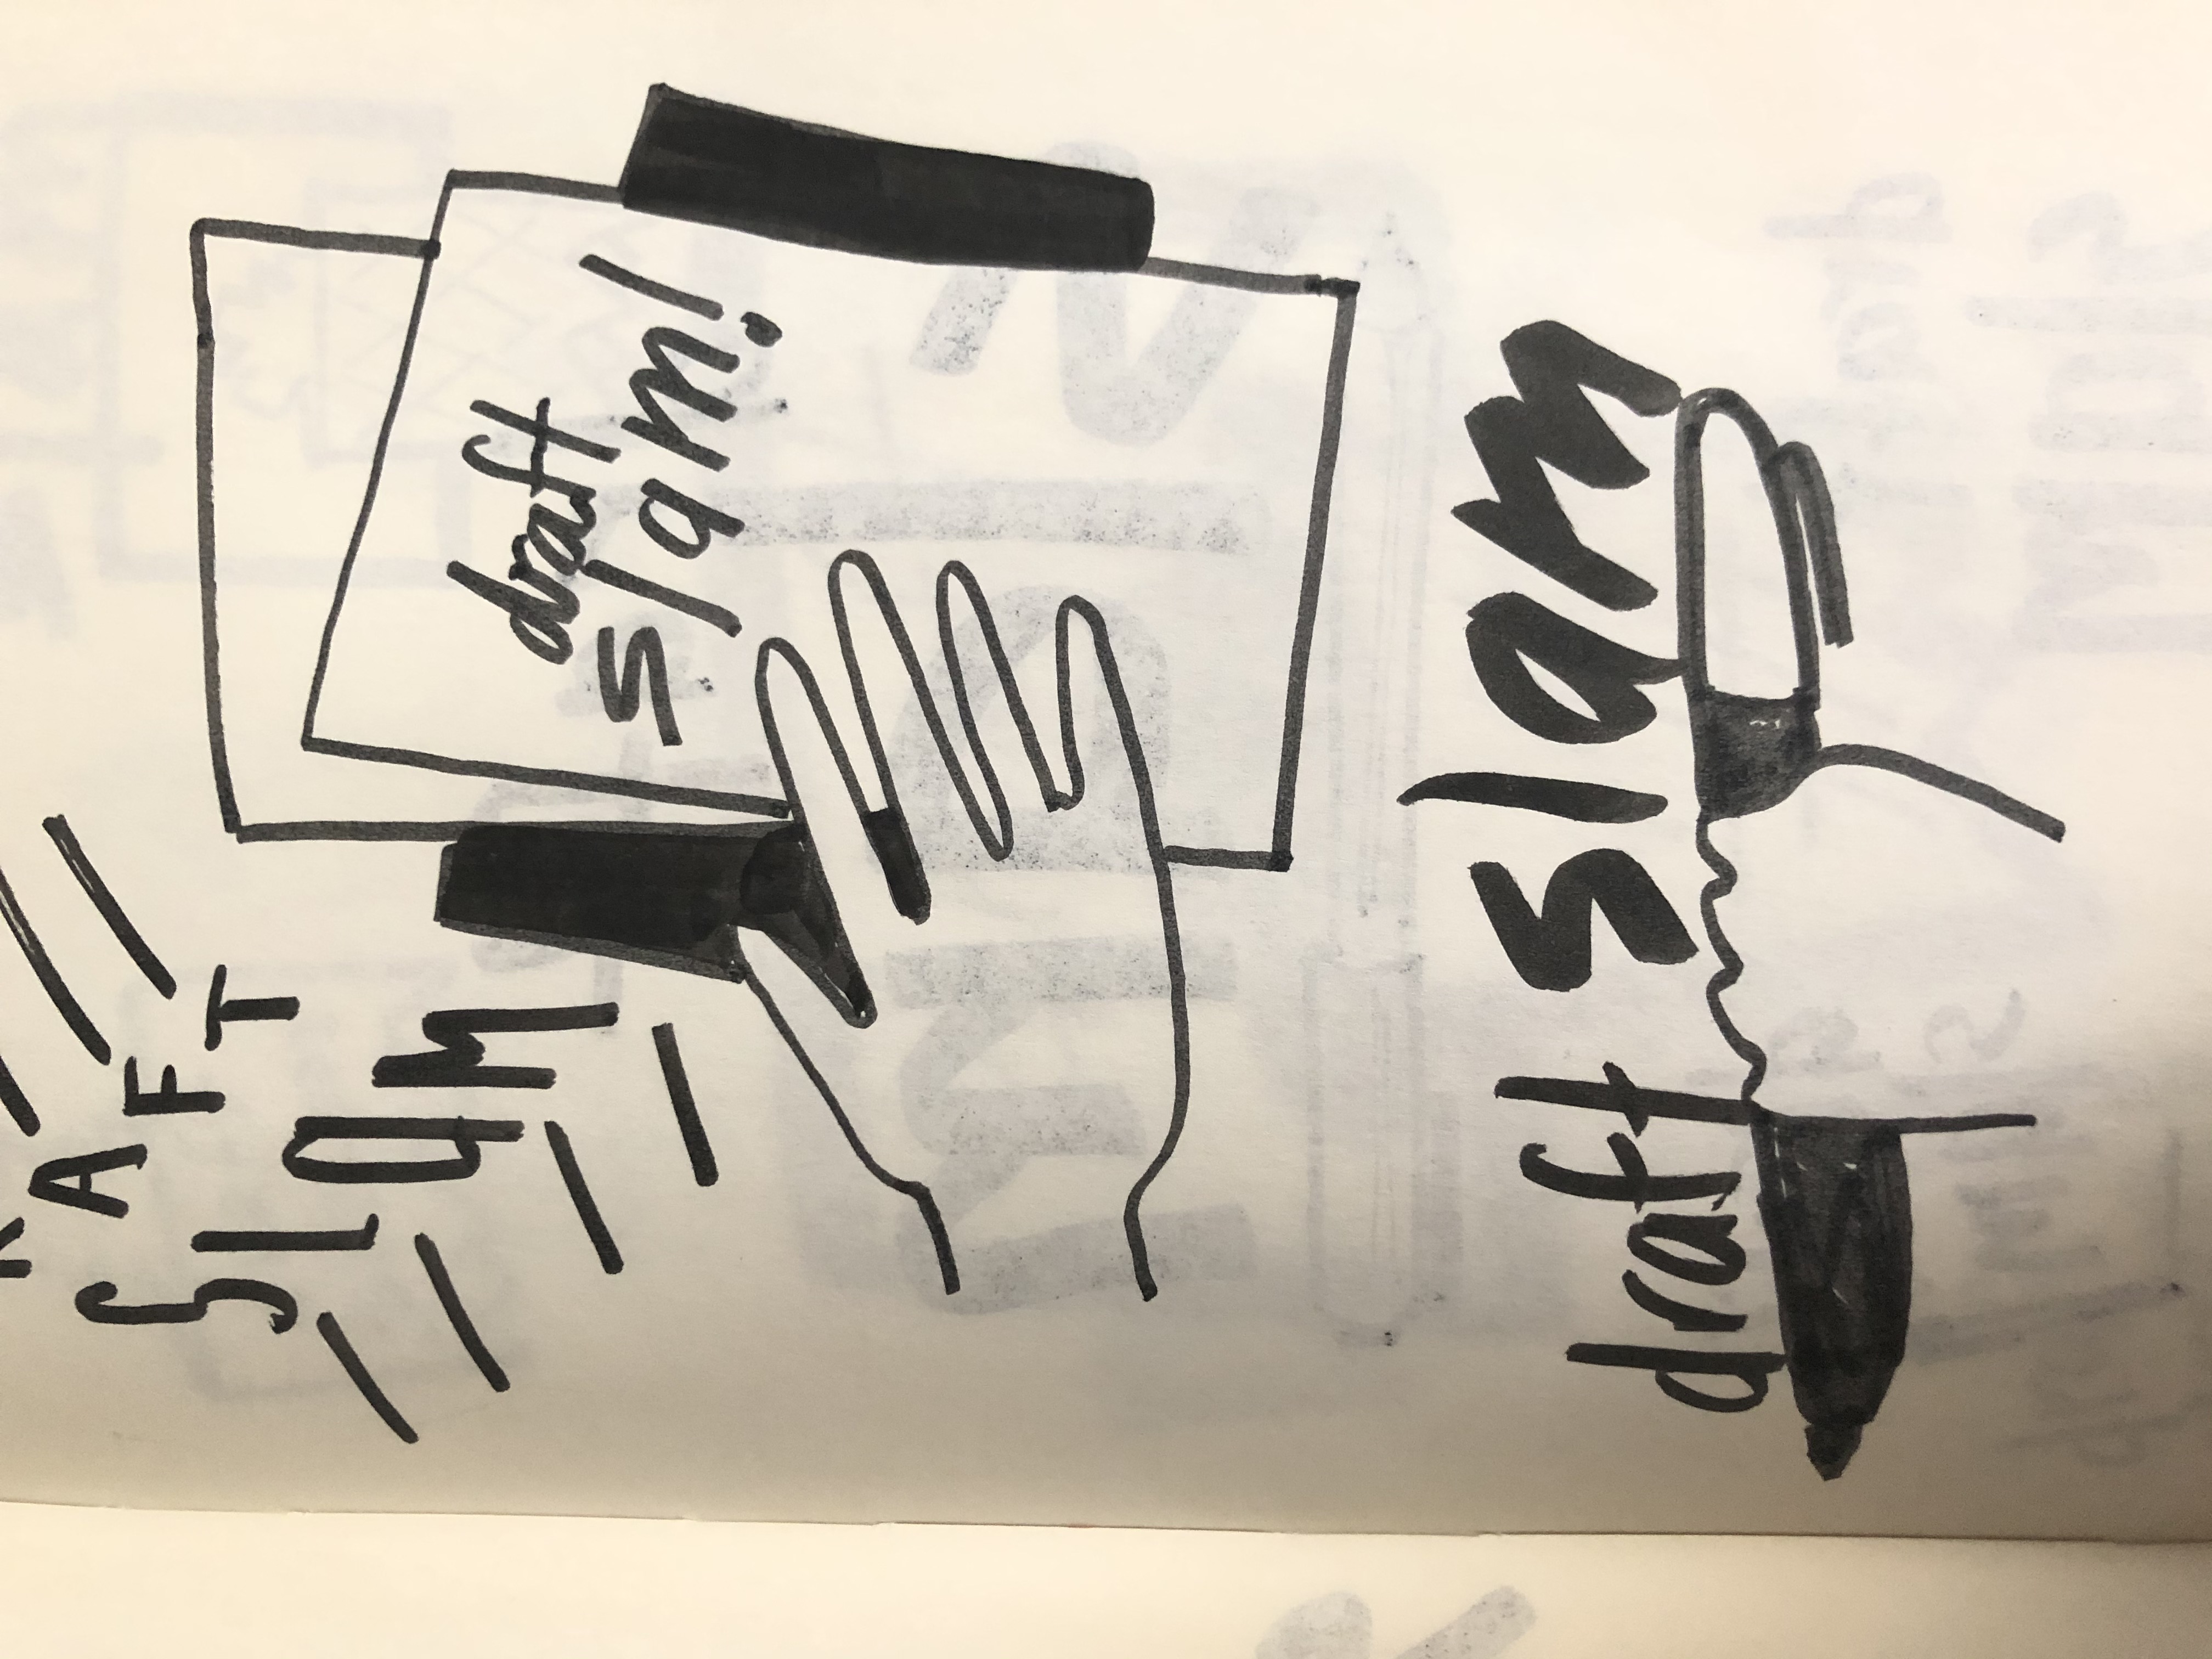 RAFT
SLAM
draft
slam!
draft slam